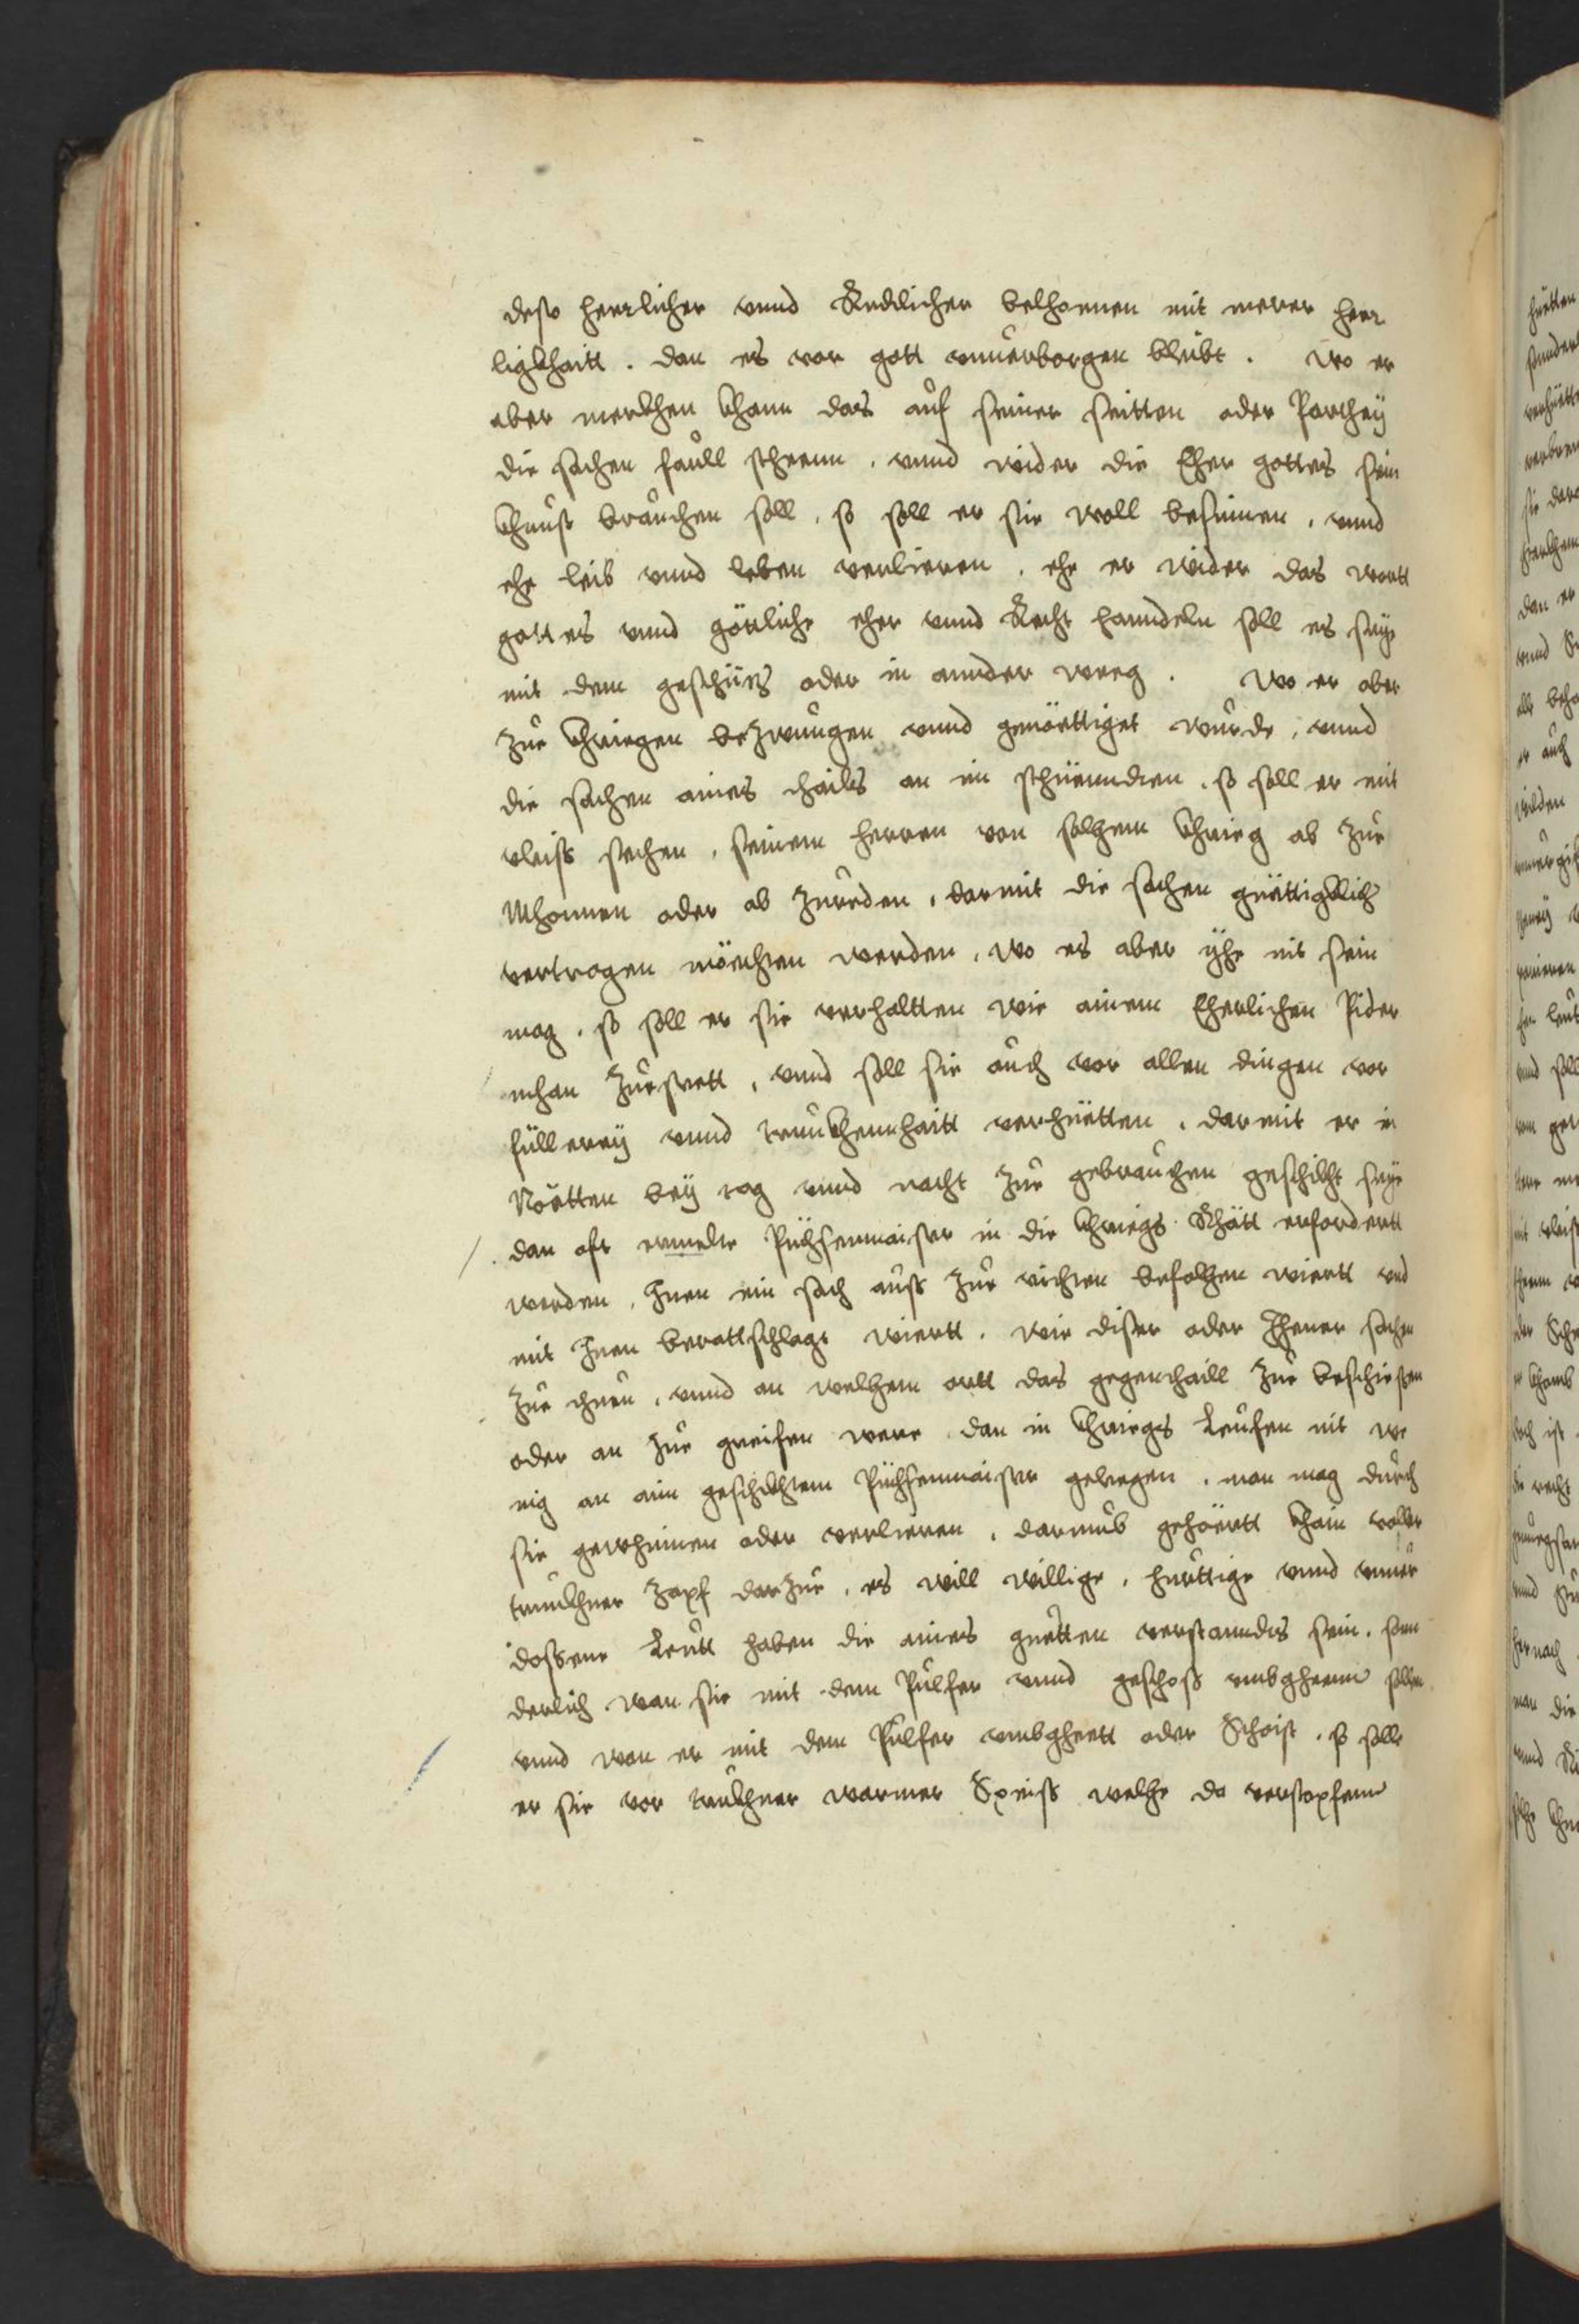 desto herrlicher vnnd Redlicher belhonen mit merer herr
ligkhaitt . dan es vor gott vnuerborgen bleibt . wo er
aber merkhen khann das auf seiner seitten oder Parthey
die sachen faull stheenn , vnnd wider die Eher gottes sein
khunst brauchen soll , so soll er sie woll besinnen , vnnd
ehe leib vnnd leben verlieren , ehe er wider das wortt
gottes vnnd göttliche eher vnnd Recht hanndeln soll es seye
mit dem geschütz oder in annder weeg . Wo er aber
zue khriegen bezwungen vnnd genöettiget wurde , vnnd
die sachen aines thails an im stüenndten , so soll er mit
vleiss sechen , seinem herren von solhem khrieg ab zue
Mhonnen oder ab zureden , darmit die sachen güettigklich
vertragen möechten werden , wo es aber yhe nit sein
mag , so soll er sie verhaltten wie ainem Eherlichen Pider
mhan zuestett , vnnd soll sie auch vor allen dingen vor
füllerey vnnd trunkhennhaitt verhüetten , darmit er in
Nöetten bey tag vnnd nacht zue gebrauchen geschikht seye
dan oft ermelte Püchsenmaister in die khriegs Rhätt erfordertt
werden , Inen ein sach auss zue richten befolhen wiertt vnd
mit Inen berattschlagt wiertt , wie diser oder Jhener sachen
zue thuen , vnnd an welhem ortt das gegenthaill zue beschiessen
oder an zue greifen were dan in khriegs Leufen nit we
nig an aim geschikhtem Püchsenmaister gelegen , man mag durch
sie gewhinnen oder verlieren , darumb gehöertt khain voller
trunkhner zapf darzue , es will willige , hurttige vnnd vnuer
dossene Leutt haben die aines guetten verstanndes sein , son
derlich wan sie mit dem Pulfer vnnd geschoss vmbgheenn sollen
vnnd wan er mit dem Pulfer vmbgheett oder Scheist , so solle
er sie vor trukhner warmer Speiss welhe da verstopfenn